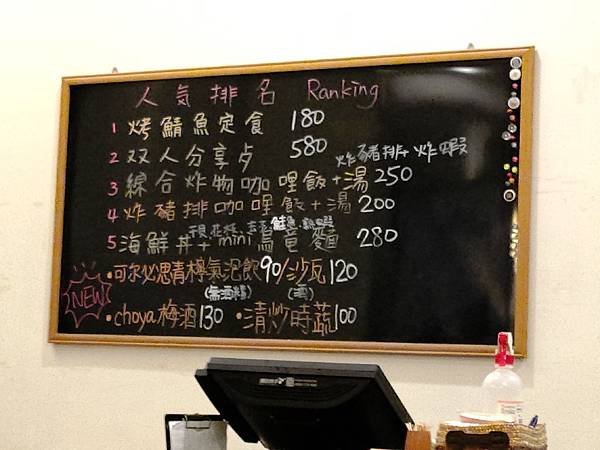 人氣排名 Ranking
1 烤鯖魚定食 180
2 双人分享歺 580
炸豬排+炸蝦
3 綜合炸物咖哩飯+湯 250
4 炸豬排咖哩飯+湯 200
鮭魚
5 海鮮丼+mini烏竜麵 280
NEW
•可尔必思青檸氣泡飲90/沙瓦120
(無酒精) (酒)
•choya梅酒130 •清炒時蔬100